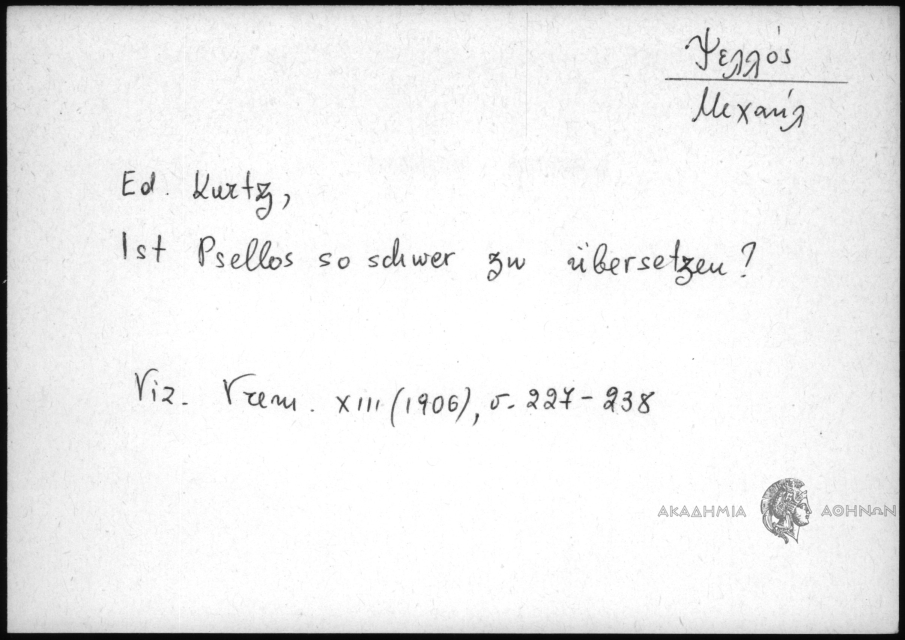 Ψελλός
Μιχαήλ
Ed. Kurtz,
Ist Psellos so schwer zu übersetzen?
Viz. Vrem. XIII (1906), σ. 227-238
ΑΚΑΔΗΜΙΑ ΑΘΗΝΩΝ